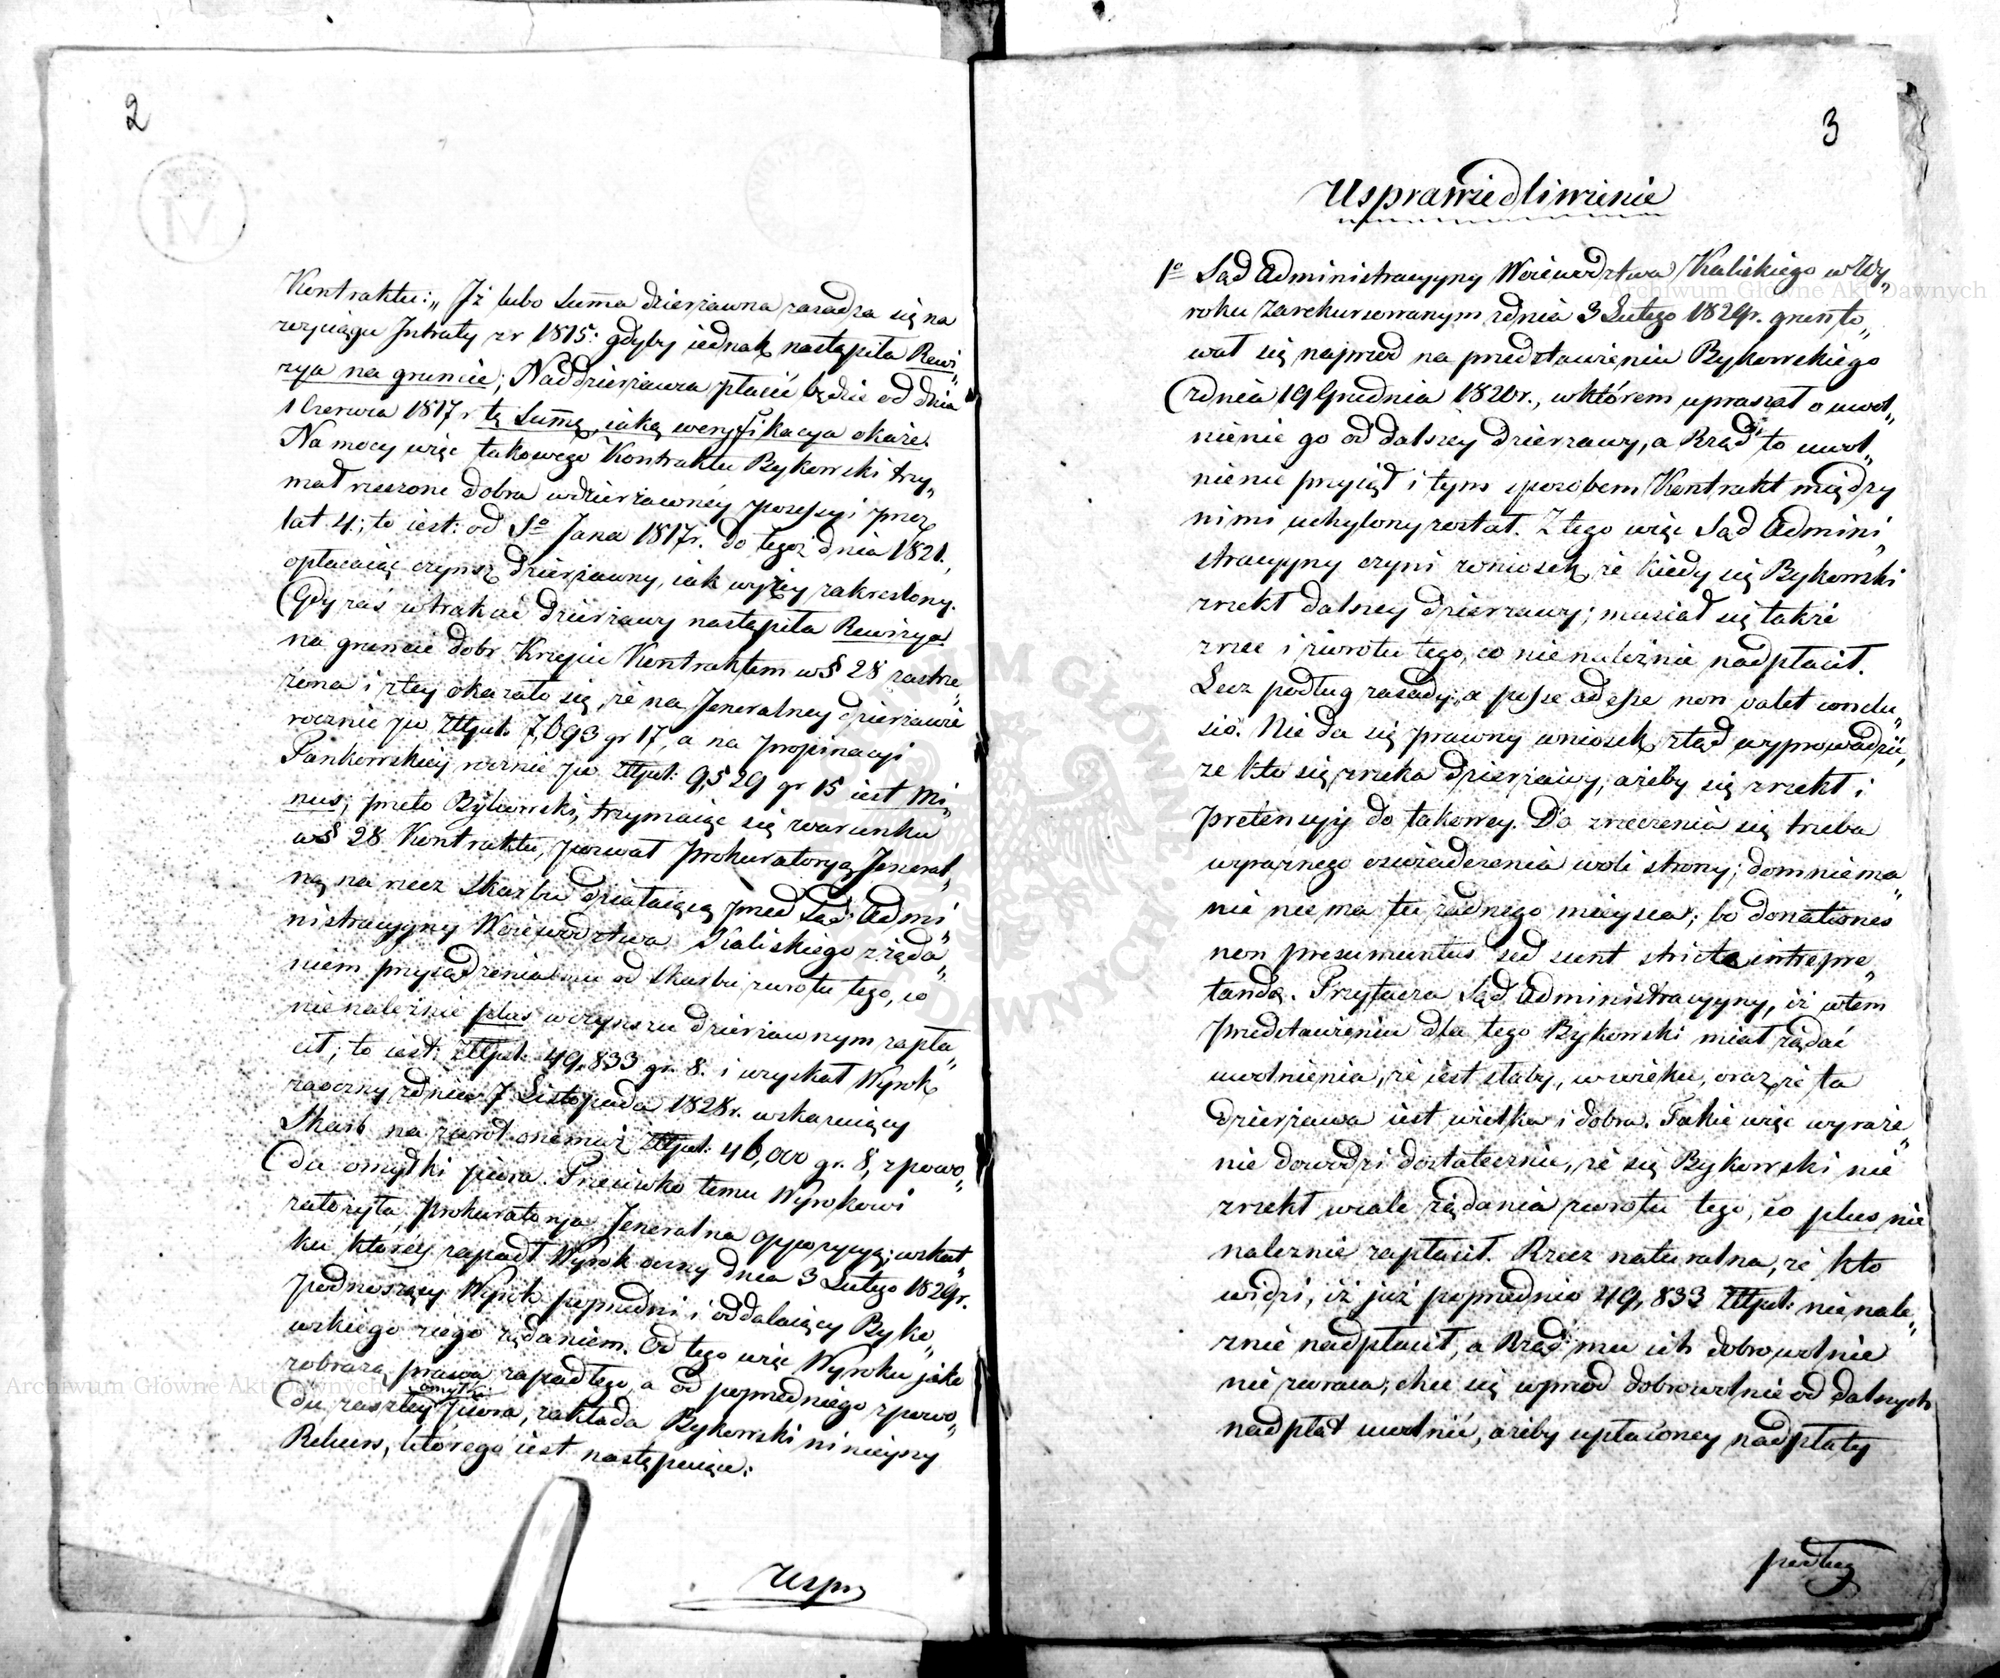 2
Kontraktu: „Iż lubo Summa dzierżawna zasadza się na
wyciągu Intraty z r 1815: gdyby iednak nastąpiła Rewi„
zya na gruncie; Naddzierżawca płacić będzie od dnia
1 Czerwca 1817 r tę Summę, iaką weryfikacya okaże.
Na mocy więc takowego Kontraktu Bykowski trzy„
mał rzeczone dobra w dzierżawnéy possessyi przez
lat 4; to iest: od So Jana 1817 r. do tegoż dnia 1821.,
opłacaiąc czynsz dzierżawny, iak wyżey zakreślony.
Gdy zaś w trakcie dzierżawy nastąpiła Rewizya
na gruncie dobr Krzepic Kontraktem w § 28 zastrze„
żona i z téy okazało się, że na Jeneralney dzierżawie
rocznie po Złtpol: 7,693 gr 17, a na propinacyi
Pankowskiéy rocznie po Złtpol: 9,529 gr 15 iest Mi„
nus; przeto Bykowski, trzymaiąc się warunku
w § 28 Kontraktu, pozwał Prokuratoryą Jeneral„
ną na rzecz Skarbu działaiącą przed Sąd Admi„
nistracyyny Woiewodztwa Kaliskiego z żąda„
niem przysądzenia mu od Skarbu zwrotu tego, co
nienależnie plus w czynszu dzierżawnym zapła„
cił; to iest: Złtpol: 49,833 gr. 8. i uzyskał Wyrok
zaoczny z dnia 7 Listopada 1828 r. wskazuiący
Skarb na zwrot onemuż Złtpol: 46,000 gr. 8, z powo„
du omyłki pióra. Przeciwko temu Wyrokowi
założyła Prokuratorya Jeneralna oppozycyą; w skut„
ku któréy zapadł Wyrok oczny dnia 3 Lutego 1829 r.
podnoszący Wyrok poprzedni i oddalaiący Byko„
wskiego z iego żądaniem. Od tego więc Wyroku jako
z obrazą prawa zapadłego, a od poprzedniego z powo„
du zaszłéy omyłki pióra, zakłada Bykowski ninieyszy
Rekurs, którego iest następuiące:
Uspr
3
Usprawiedliwienie
1o Sąd Administracyyny Woiewodztwa Kaliskiego w Wy„
roku zarekursowanym z dnia 3 Lutego 1829 r. grunto„
wał się naprzód na przedstawieniu Bykowskiego
z dnia 19 Grudnia 1820 r., w którem upraszał o uwol„
nienie go od dalszey dzierżawy, a Rząd to uwol„
nienie przyiął i tym sposobem Kontrakt między
nimi uchylony został. Z tego więc Sąd Admini„
stracyyny czyni wniosek, że kiedy się Bykowski
zrzekł dalszey dzierżawy; musiał się także
zrzec i zwrotu tego, co nienależnie nadpłacił.
Lecz podług zasady: „a posse ad esse non valet conclu„
sio.” Nie da się prawny wniosek ztąd wyprowadzić,
że kto się zrzeka dzierżawy, ażeby się zrzekł i
pretensyi do takowey. Do zrzeczenia się trzeba
wyraznego oświadczenia woli strony; domniema„
nie nie ma tu żadnego mieysca; bo donationes
non presumuntur sed sunt stricte intrepre„
tandæ. Przytacza Sąd Administracyyny, iż w tém
przedstawieniu dla tego Bykowski miał żądać
uwolnienia, że iest słaby, w wieku, oraz że ta
dzierżawa iest wielka i dobra. Takie więc wyraże„
nie dowodzi dostatecznie, że się Bykowski nie
zrzekł wcale żądania zwrotu tego, co plus nie
należnie zapłacił. Rzecz naturalna, że kto
widzi, iż już poprzednio 49,833 Złtpol: nienale„
żnie nadpłacił, a Rząd mu ich dobrowolnie
nie zwraca, chce się wprzód dobrowolnie od dalszych
nadpłat uwolnić, ażeby upłacóney nadpłaty
podług